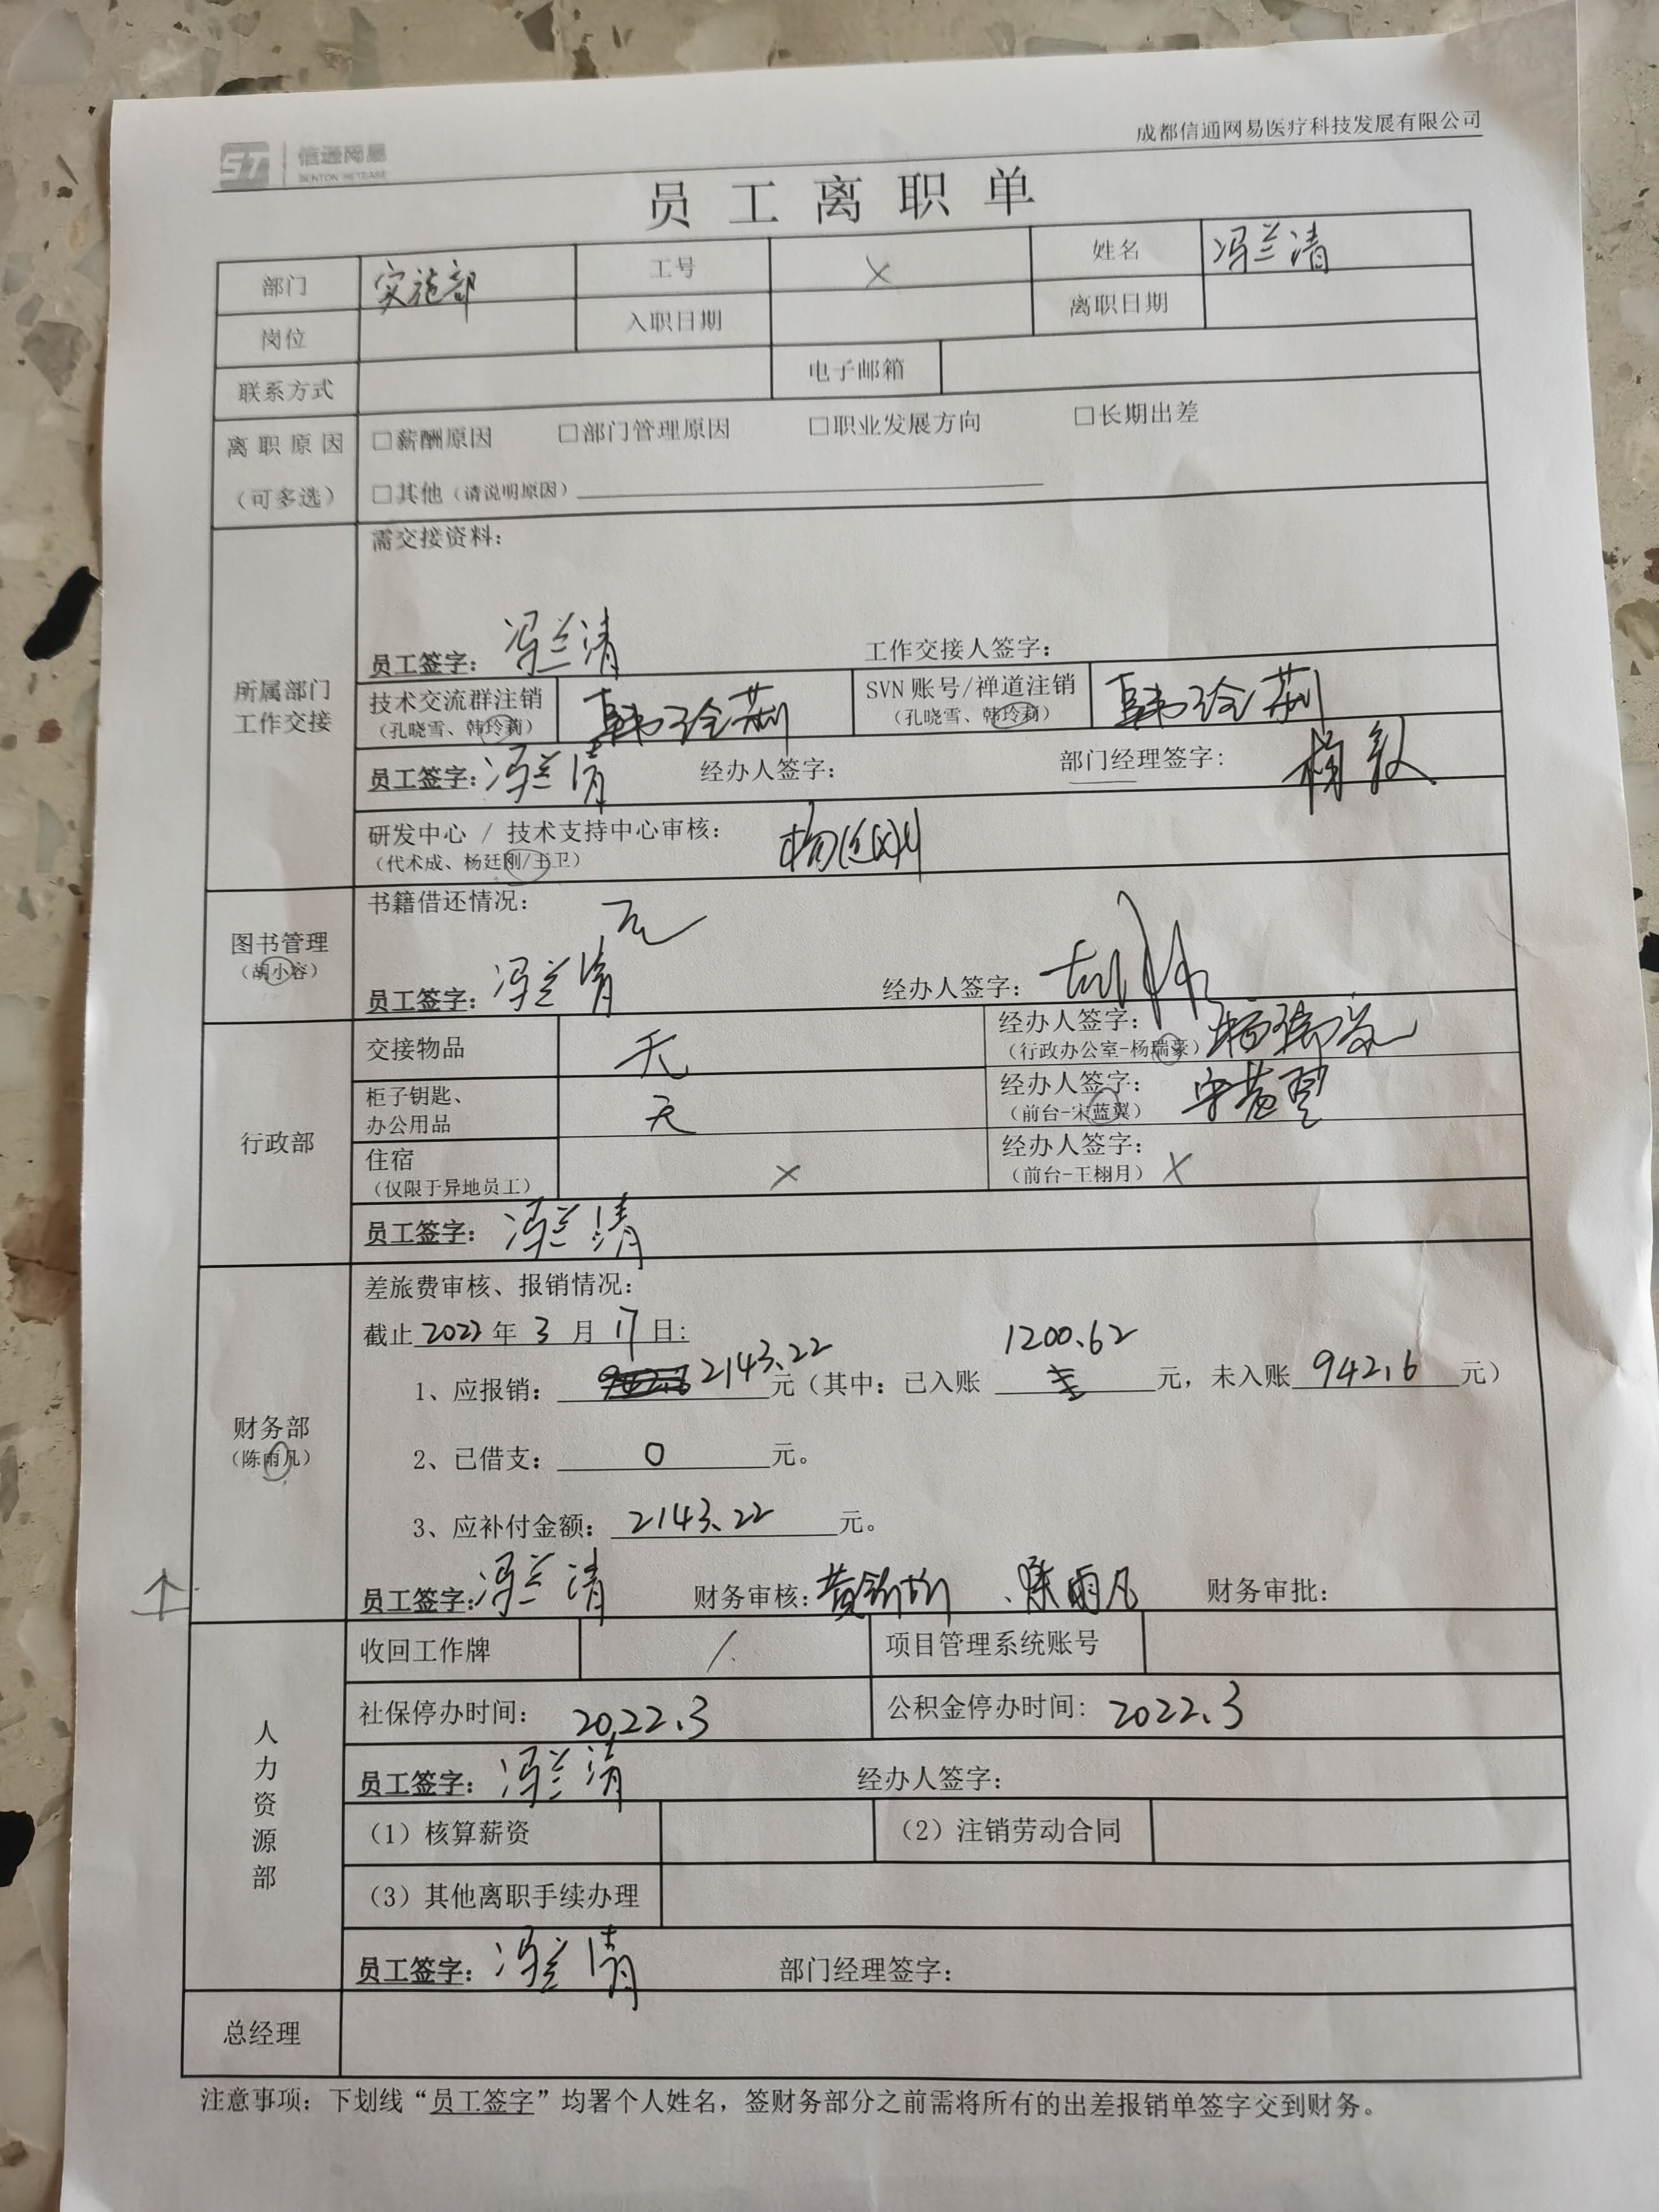 信通网易
成都信通网易医疗科技发展有限公司
员工离职单
部门 实施部 工号 X 姓名 冯兰清
岗位 入职日期 离职日期
联系方式 电子邮箱
离职原因 □薪酬原因 □部门管理原因 □职业发展方向 □长期出差
（可多选） □其他（请说明原因）
需交接资料：
员工签字：冯兰清 工作交接人签字：
所属部门
工作交接
技术交流群注销 韩玲莉 SVN账号/禅道注销 韩玲莉
（孔晓雪、韩玲莉） （孔晓雪、韩玲莉）
员工签字：冯兰清 经办人签字： 部门经理签字：
研发中心 / 技术支持中心审核： 杨廷刚
（代术成、杨廷刚/王卫）
图书管理
（胡小容）
书籍借还情况： 无
员工签字：冯兰清 经办人签字：
行政部
交接物品 无 经办人签字： 杨瑞豪
（行政办公室-杨瑞豪）
柜子钥匙、 无 经办人签字： 宋蓝翼
办公用品 （前台-宋蓝翼）
住宿 X 经办人签字： X
（仅限于异地员工） （前台-王栩月）
员工签字：冯兰清
财务部
（陈雨凡）
差旅费审核、报销情况：
截止2022年3月17日：
1、应报销：2143.22元（其中：已入账 1200.62 元，未入账942.6元）
2、已借支：0元。
3、应补付金额：2143.22元。
员工签字：冯兰清 财务审核： 、陈雨凡 财务审批：
人力资源部
收回工作牌 / 项目管理系统账号
社保停办时间： 2022.3 公积金停办时间：2022.3
员工签字：冯兰清 经办人签字：
（1）核算薪资 （2）注销劳动合同
（3）其他离职手续办理
员工签字：冯兰清 部门经理签字：
总经理
注意事项：下划线“员工签字”均署个人姓名，签财务部分之前需将所有的出差报销单签字交到财务。